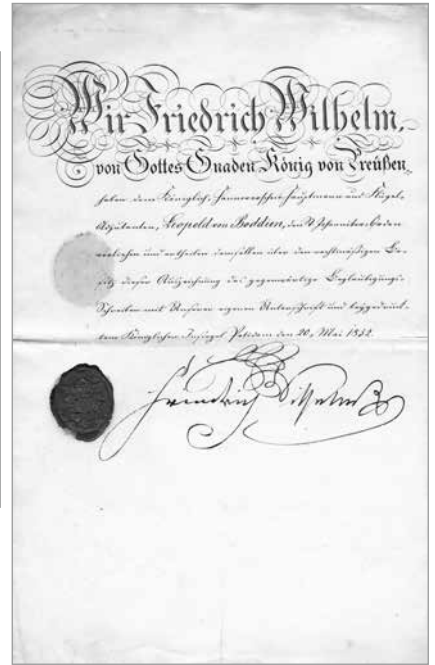 Wir Friedrich Wilhelm,
von Gottes Gnaden König von Preußen,
haben dem Königlich-Hannoverschen Hauptmann und Flügel-
Adjutanten, Leopold von Boddien, den St Johanniter-Orden
verliehen und ertheilen demselben über den rechtmäßigen Be-
sitz dieser Auszeichnung das gegenwärtige Beglaubigungs-
Schreiben mit Unserer eigenen Unterschrift und beygedruck-
tem Königlichen Insiegel Potsdam den 20. Mai
Friedrich Wilhelm